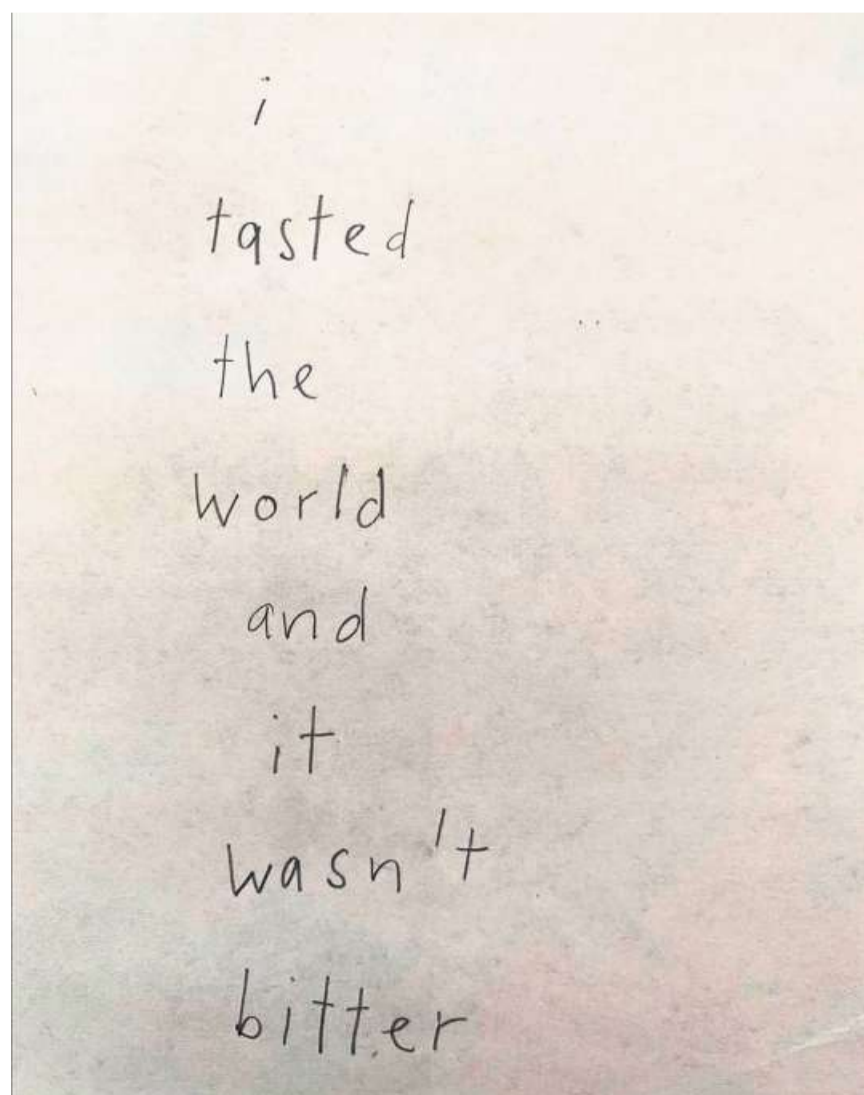 i
tasted
the
world
and
it
wasn't
bitter